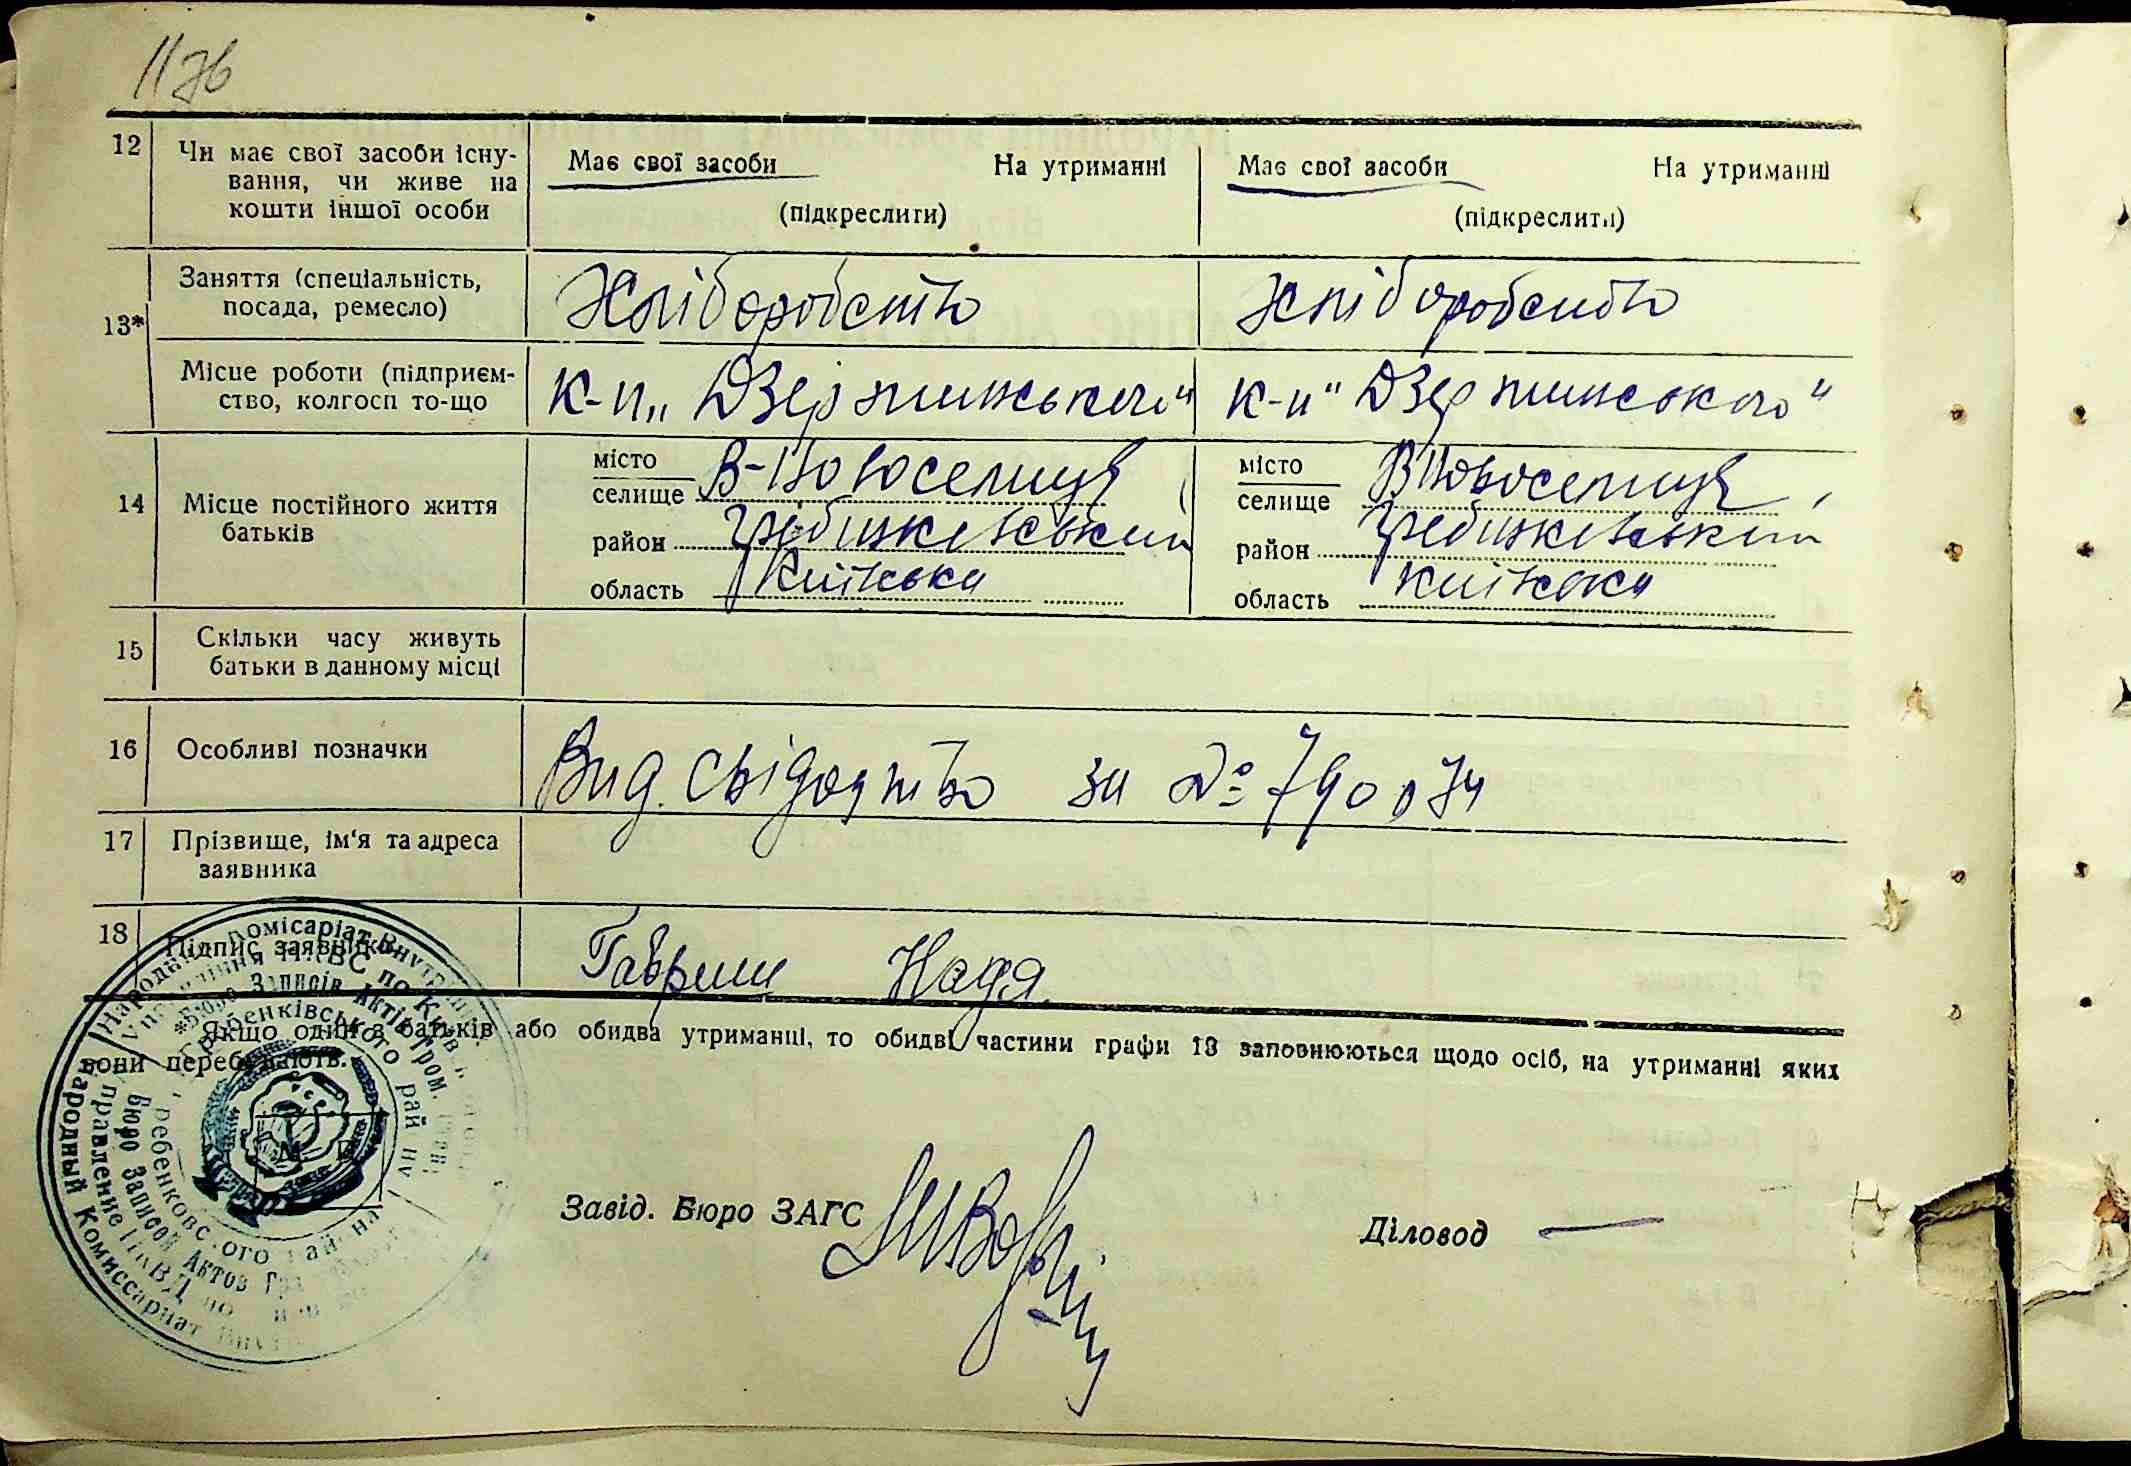 117б
12 Чи має свої засоби існу-
вання, чи живе на
кошти іншої особи
Має свої засоби На утриманні
(підкреслити)
Має свої засоби На утриманні
(підкреслити)
13*
Заняття (спеціальність,
посада, ремесло)
Хліборобство
Хліборобство
Місце роботи (підприєм-
ство, колгосп то-що
К-п „Дзержинського"
к-п "Дзержинського"
14 Місце постійного життя
батьків
місто
селище В-Новоселиця
район Гребінківський
область Київська
місто
селище В Новоселиця
район Гребінківський
область Київська
15 Скільки часу живуть
батьки в данному місці
16 Особливі позначки
Вид. свідоцтво за № 790074
17 Прізвище, ім'я та адреса
заявника
18 Підпис заявника
Гавриш Надя
*Якщо один з батьків або обидва утриманці, то обидві частини графи 13 заповнюються щодо осіб, на утриманні яких
вони перебувають.
М. П.
Завід. Бюро ЗАГС
Діловод —
Народний Комісаріат Внутрішніх
Управління НКВС по Київській
Бюро Записів Актів Гром.
Гребенківського рай
Народный Комиссариат Внут
Управление НКВД по
Бюро Записей Актов Гр
Гребенковского района